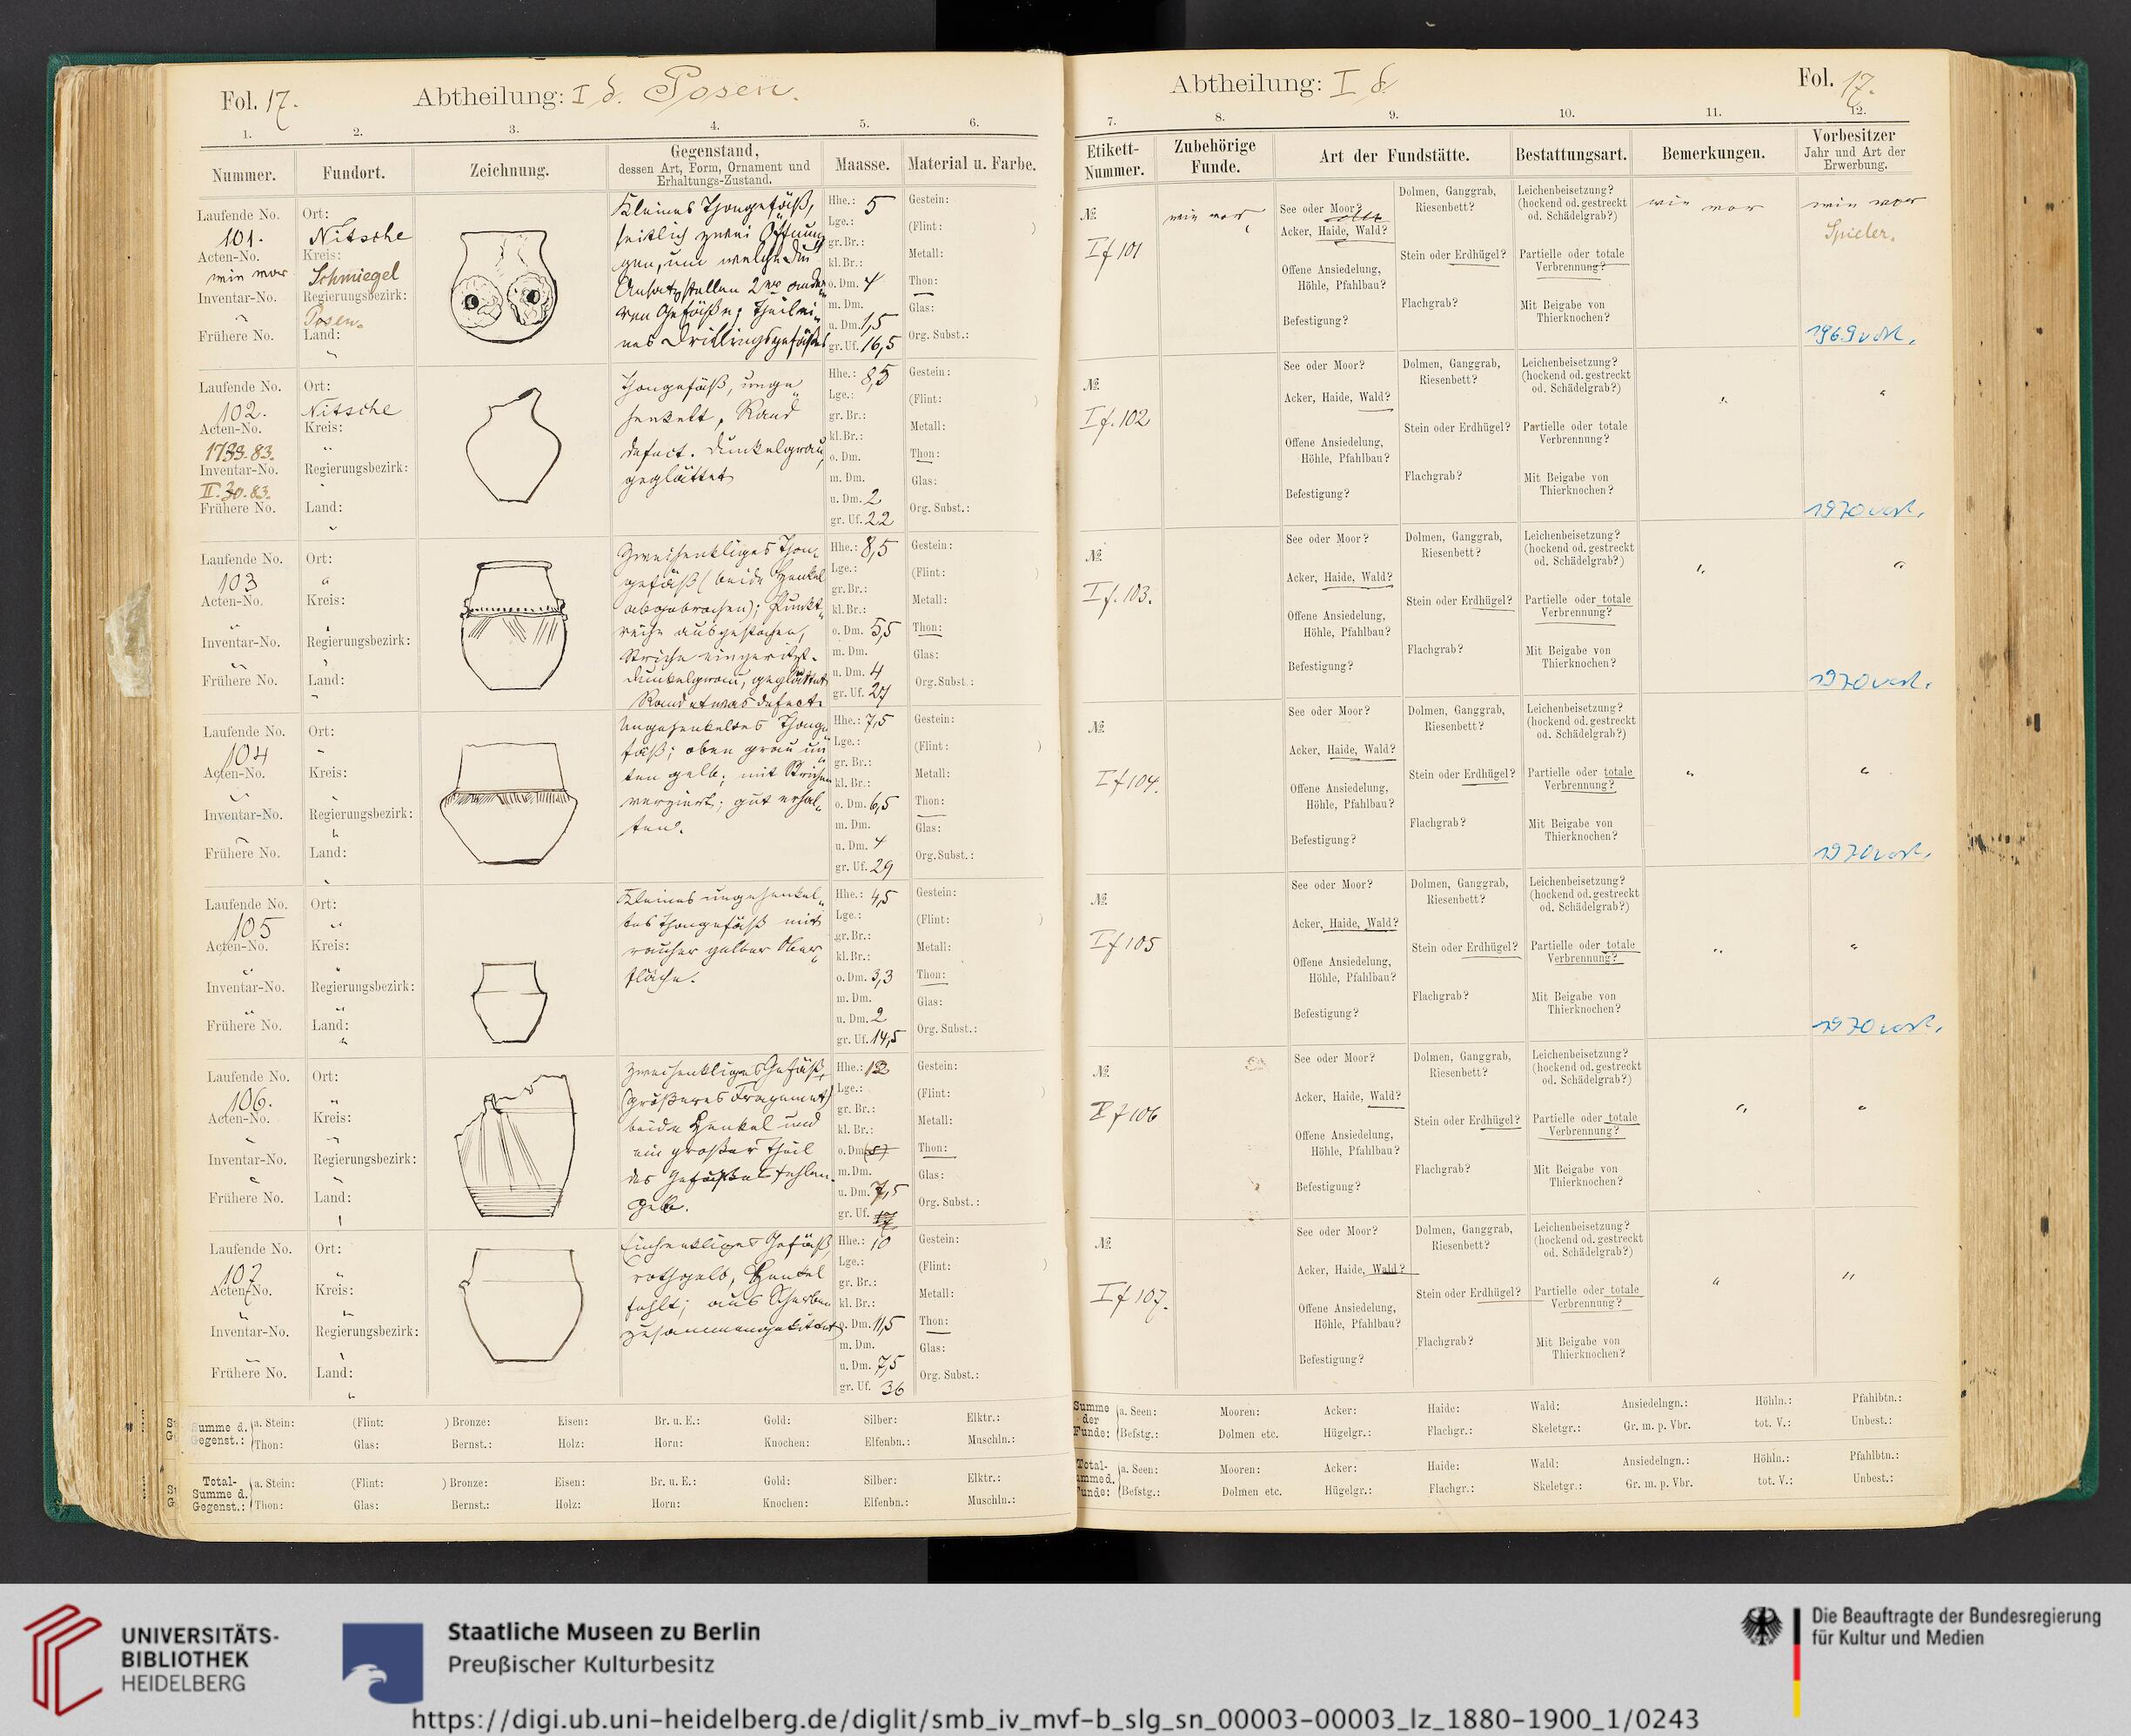 Fol. 17.
Abtheilung: I d. Posen.
1. 2. 3. 4. 5. 6.
Nummer.
Fundort.
Zeichnung.
Gegenstand,
dessen Art, Form, Ornament und
Erhaltungs-Zustand.
Maasse.
Material u. Farbe.
Laufende No.
101.
Acten-No.
wie vor
Inventar-No.
"
Frühere No.
Ort:
Nitsche
Kreis:
Schmiegel
Regierungsbezirk:
Posen.
Land:
"
Kleines Thongefäß,
seitlich zwei Öffnun
gen, um welche die
Ansatzstellen 2er ande
ren Gefäße; Theil ei-
nes Drillingsgefäßes
Hhe.: 5
Lge.:
gr. Br.:
kl. Br.:
o. Dm. 4
m. Dm.
u. Dm. 1,5
gr. Uf. 16,5
Gestein:
(Flint: )
Metall:
Thon:
Glas:
Org. Subst.:
Laufende No.
102.
Acten-No.
1733.83.
Inventar-No.
II.30.83.
Frühere No.
Ort:
Nitsche
Kreis:
"
Regierungsbezirk:
"
Land:
"
Thongefäß, unge
henkelt, Rand
defect. dunkelgrau,
geglättet
Hhe.: 8,5
Lge.:
gr. Br.:
kl. Br.:
o. Dm.
m. Dm.
u. Dm. 2
gr. Uf. 22
Gestein:
(Flint: )
Metall:
Thon:
Glas:
Org. Subst.:
Laufende No.
103
Acten-No.
"
Inventar-No.
"
Frühere No.
Ort:
"
Kreis:
"
Regierungsbezirk:
"
Land:
"
Zweihenkliges Thon-
gefäß (beide Henkel
abgebrochen); Punkt-
reihe ausgestochen,
Striche eingeritzt.
dunkelgrau, geglättet
Rand etwas defect.
Hhe.: 8,5
Lge.:
gr. Br.:
kl. Br.:
o. Dm. 5,5
m. Dm.
u. Dm. 4
gr. Uf. 27
Gestein:
(Flint: )
Metall:
Thon:
Glas:
Org. Subst.:
Laufende No.
104
Acten-No.
"
Inventar-No.
"
Frühere No.
Ort:
"
Kreis:
"
Regierungsbezirk:
"
Land:
"
Ungehenkeltes Thonge
fäß; oben grau un
ten gelb; mit Strichen
verziert; gut erhal-
ten.
Hhe.: 7,5
Lge.:
gr. Br.:
kl. Br.:
o. Dm. 6,5
m. Dm.
u. Dm. 4
gr. Uf. 29
Gestein:
(Flint: )
Metall:
Thon:
Glas:
Org. Subst.:
Laufende No.
105
Acten-No.
"
Inventar-No.
"
Frühere No.
Ort:
"
Kreis:
Regierungsbezirk:
"
Land:
"
Kleines ungehenkel-
tes Thongefäß mit
rauher gelber Ober-
fläche.
Hhe.: 4,5
Lge.:
gr. Br.:
kl. Br.:
o. Dm. 3,3
m. Dm.
u. Dm. 2
gr. Uf. 14,5
Gestein:
(Flint: )
Metall:
Thon:
Glas:
Org. Subst.:
Laufende No.
106.
Acten-No.
"
Inventar-No.
"
Frühere No.
Ort:
"
Kreis:
"
Regierungsbezirk:
"
Land:
"
Zweihenkliges Gefäß,
(größeres Fragment)
beide Henkel und
ein großer Theil
des Gefäßes fehlen.
Gelb.
Hhe.: 12
Lge.:
gr. Br.:
kl. Br.:
o. Dm.
m. Dm.
u. Dm. 7,5
gr. Uf.
Gestein:
(Flint: )
Metall:
Thon:
Glas:
Org. Subst.:
Laufende No.
107
Acten-No.
"
Inventar-No.
"
Frühere No.
Ort:
"
Kreis:
"
Regierungsbezirk:
"
Land:
"
Einhenkliges Gefäß,
rothgelb, Henkel
fehlt; aus Scherben
zusammengekittet
Hhe.: 10
Lge.:
gr. Br.:
kl. Br.:
o. Dm. 11,5
m. Dm.
u. Dm. 7,5
gr. Uf. 36
Gestein:
(Flint: )
Metall:
Thon:
Glas:
Org. Subst.:
Summe d. Gegenst.: a. Stein: (Flint: ) Bronze: Eisen: Br. u. E.: Gold: Silber: Elktr.:
Thon: Glas: Bernst.: Holz: Horn: Knochen: Elfenbn.: Muschln.:
Total-Summe d. Gegenst.: a. Stein: (Flint: ) Bronze: Eisen: Br. u. E.: Gold: Silber: Elktr.:
Thon: Glas: Bernst.: Holz: Horn: Knochen: Elfenbn.: Muschln.:
Abtheilung: I d
Fol. 17.
7. 8. 9. 10. 11. 12.
Etikett-
Nummer.
Zubehörige
Funde.
Art der Fundstätte.
Bestattungsart.
Bemerkungen.
Vorbesitzer
Jahr und Art der
Erwerbung.
№
If 101
wie vor
See oder Moor?
Acker, Haide, Wald?
Offene Ansiedelung,
Höhle, Pfahlbau?
Befestigung?
Dolmen, Ganggrab,
Riesenbett?
Stein oder Erdhügel?
Flachgrab?
Leichenbeisetzung?
(hockend od. gestreckt
od. Schädelgrab?)
Partielle oder totale
Verbrennung?
Mit Beigabe von
Thierknochen?
wie vor
wie vor
Spieler.
1969 vorh.
№
If. 102
See oder Moor?
Acker, Haide, Wald?
Offene Ansiedelung,
Höhle, Pfahlbau?
Befestigung?
Dolmen, Ganggrab,
Riesenbett?
Stein oder Erdhügel?
Flachgrab?
Leichenbeisetzung?
(hockend od. gestreckt
od. Schädelgrab?)
Partielle oder totale
Verbrennung?
Mit Beigabe von
Thierknochen?
"
"
1970 vorh.
№
If. 103.
See oder Moor?
Acker, Haide, Wald?
Offene Ansiedelung,
Höhle, Pfahlbau?
Befestigung?
Dolmen, Ganggrab,
Riesenbett?
Stein oder Erdhügel?
Flachgrab?
Leichenbeisetzung?
(hockend od. gestreckt
od. Schädelgrab?)
Partielle oder totale
Verbrennung?
Mit Beigabe von
Thierknochen?
"
"
1970 vorh.
№
If 104.
See oder Moor?
Acker, Haide, Wald?
Offene Ansiedelung,
Höhle, Pfahlbau?
Befestigung?
Dolmen, Ganggrab,
Riesenbett?
Stein oder Erdhügel?
Flachgrab?
Leichenbeisetzung?
(hockend od. gestreckt
od. Schädelgrab?)
Partielle oder totale
Verbrennung?
Mit Beigabe von
Thierknochen?
"
"
1970 vorh.
№
If 105
See oder Moor?
Acker, Haide, Wald?
Offene Ansiedelung,
Höhle, Pfahlbau?
Befestigung?
Dolmen, Ganggrab,
Riesenbett?
Stein oder Erdhügel?
Flachgrab?
Leichenbeisetzung?
(hockend od. gestreckt
od. Schädelgrab?)
Partielle oder totale
Verbrennung?
Mit Beigabe von
Thierknochen?
"
"
1970 vorh.
№
If 106
See oder Moor?
Acker, Haide, Wald?
Offene Ansiedelung,
Höhle, Pfahlbau?
Befestigung?
Dolmen, Ganggrab,
Riesenbett?
Stein oder Erdhügel?
Flachgrab?
Leichenbeisetzung?
(hockend od. gestreckt
od. Schädelgrab?)
Partielle oder totale
Verbrennung?
Mit Beigabe von
Thierknochen?
"
"
№
If 107.
See oder Moor?
Acker, Haide, Wald?
Offene Ansiedelung,
Höhle, Pfahlbau?
Befestigung?
Dolmen, Ganggrab,
Riesenbett?
Stein oder Erdhügel?
Flachgrab?
Leichenbeisetzung?
(hockend od. gestreckt
od. Schädelgrab?)
Partielle oder totale
Verbrennung?
Mit Beigabe von
Thierknochen?
"
"
Summe der Funde: a. Seen: Mooren: Acker: Haide: Wald: Ansiedelngn.: Höhln.: Pfahlbtn.:
Befstg.: Dolmen etc. Hügelgr.: Flachgr.: Skeletgr.: Gr. m. p. Vbr. tot. V.: Unbest.:
Total- a. Seen: Mooren: Acker: Haide: Wald: Ansiedelngn.: Höhln.: Pfahlbtn.:
Befstg.: Dolmen etc. Hügelgr.: Flachgr.: Skeletgr.: Gr. m. p. Vbr. tot. V.: Unbest.:
UNIVERSITÄTS-
BIBLIOTHEK
HEIDELBERG
Staatliche Museen zu Berlin
Preußischer Kulturbesitz
Die Beauftragte der Bundesregierung
für Kultur und Medien
https://digi.ub.uni-heidelberg.de/diglit/smb_iv_mvf-b_slg_sn_00003-00003_lz_1880-1900_1/0243